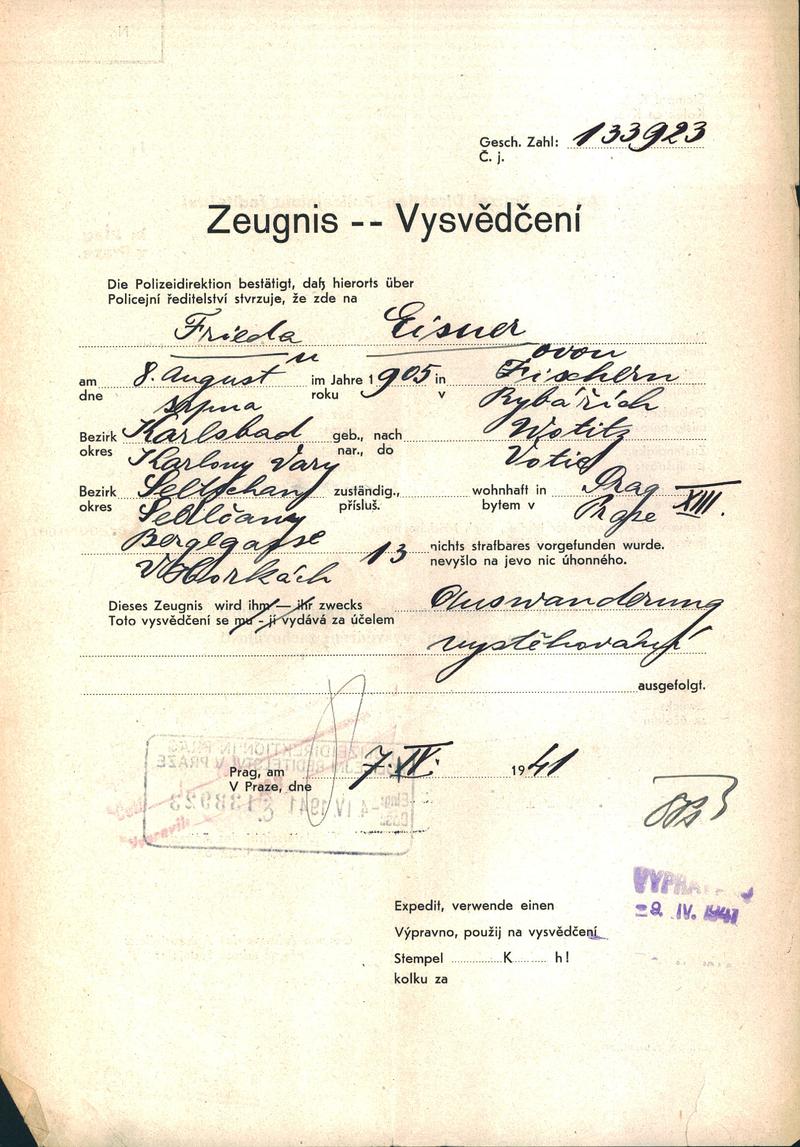 Gesch. Zahl: 133923
Č. j.
Zeugnis -- Vysvědčení
Die Polizeidirektion bestätigt, daß hierorts über
Policejní ředitelství stvrzuje, že zde na
Frieda Eisner
ovou
am 8. August im Jahre 1905 in Fischern
dne srpna roku v Rybářích
Bezirk Karlsbad geb., nach Wotitz
okres Karlovy Vary nar., do Votic
Bezirk Seltschan zuständig., wohnhaft in Prag XIII.
okres Sedlčany přísluš. bytem v Praze
Bergegasse 13 nichts strafbares vorgefunden wurde.
V Horkách nevyšlo na jevo nic úhonného.
Dieses Zeugnis wird ihm — ihr zwecks Auswanderung
Toto vysvědčení se mu - jí vydává za účelem
vystěhování
ausgefolgt.
Prag, am 7. IV. 1941
V Praze, dne
POLIZEIDIREKTION IN PRAG
POLICEJNÍ ŘEDITELSTVÍ V PRAZE
-4 IV 1941 Č 133923
VYPRA
-9. IV. 1941
Expedit, verwende einen
Výpravno, použij na vysvědčení
Stempel K h!
kolku za